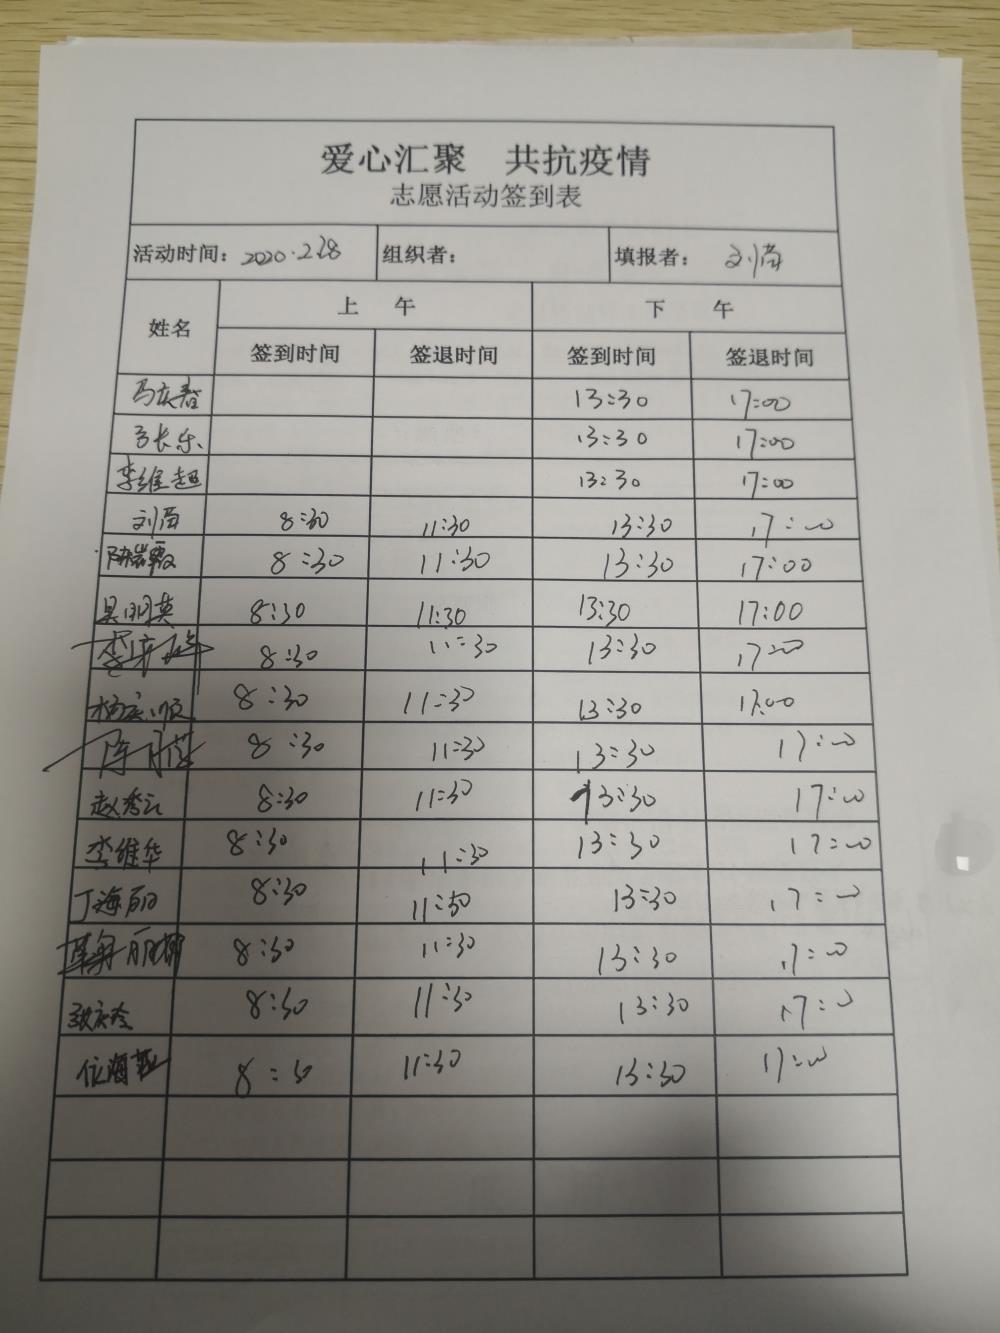 爱心汇聚 共抗疫情
志愿活动签到表
活动时间: 2020.2.28 组织者: 填报者:
姓名 上 午 下 午
签到时间 签退时间 签到时间 签退时间
马庆春 13:30 17:00
长乐 13:30 17:00
李维超 13:30 17:00
刘 8:30 11:30 13:30 17:00
陈岩霞 8:30 11:30 13:30 17:00
吴明英 8:30 11:30 13:30 17:00
李 8:30 11:30 13:30 17:00
杨 顺 8:30 11:30 13:30 17:00
陈月莲 8:30 11:30 13:30 17:00
赵秀云 8:30 11:30 13:30 17:00
李维华 8:30 11:30 13:30 17:00
丁海丽 8:30 11:30 13:30 17:00
丽娜 8:30 11:30 13:30 17:00
庆玲 8:30 11:30 13:30 17:00
海 8:30 11:30 13:30 17:00